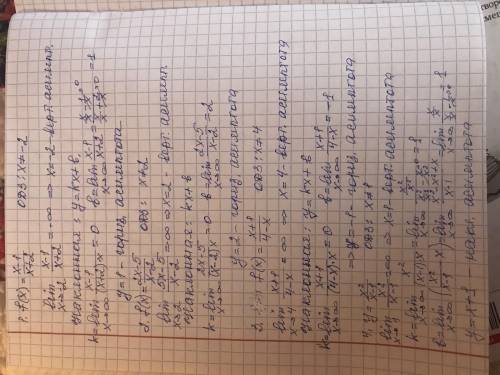 1. f(x) = x-1/x+2   ОДЗ: x≠-2
lim x→-2 x-1/x+2 = -∞ ⇒ x=-2 - верт. асимпт.
Наклонная: y=kx+b,
k=lim x→∞ x-1/(x+2)x = 0   b=lim x→∞ x-1/x+2 = = 1
y=1 - гориз. асимптота
2. f(x) = 2x-5/x-2   ОДЗ: x≠2
lim x→2 5x-5/x-2 = ∞ ⇒ x=2 - верт. асимпт.
Наклонная: kx+b
k=lim x→∞ 2x-5/(x-2)x = 0   b=lim x→∞ 2x-5/x-2 = 2
y=2 - гориз. асимптота
f(x) = x+1/4-x   ОДЗ: x≠4
lim x→4 x+1/4-x = ∞ ⇒ x=4 - верт. асимптота
Наклонная: y=kx+b
k=lim x→∞ x+1/(4-x)x = 0   b=lim x→∞ x+1/4-x = -1
⇒ y=-1 - гориз. асимптота
4. y = x²/x-1   ОДЗ: x≠1
lim x→1 x²/x-1 = ∞ ⇒ x=1 - верт. асимптота
k=lim x→∞ x²/(x-1)x = = 1
b=lim x→∞ (x²/x-1 - x) = lim x→∞ x²-x²+x/x-1 = lim x→∞ = 1
y=x+1 - накл. асимптота